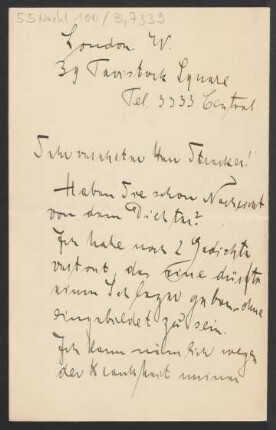 55 Nachl 100/B,7339
London. W.
39 Tavistock Square
Tel. 3333 Central
Sehr verehrter Herr Streicher!
Haben Sie schon Nachricht
von dem Dichter?
Ich habe noch 2 Gedichte
vertont, das eine dürfte
einen Schlager geben, ohne
eingebildet zu sein.
Ich kann nämlich wegen
der Krankheit meiner